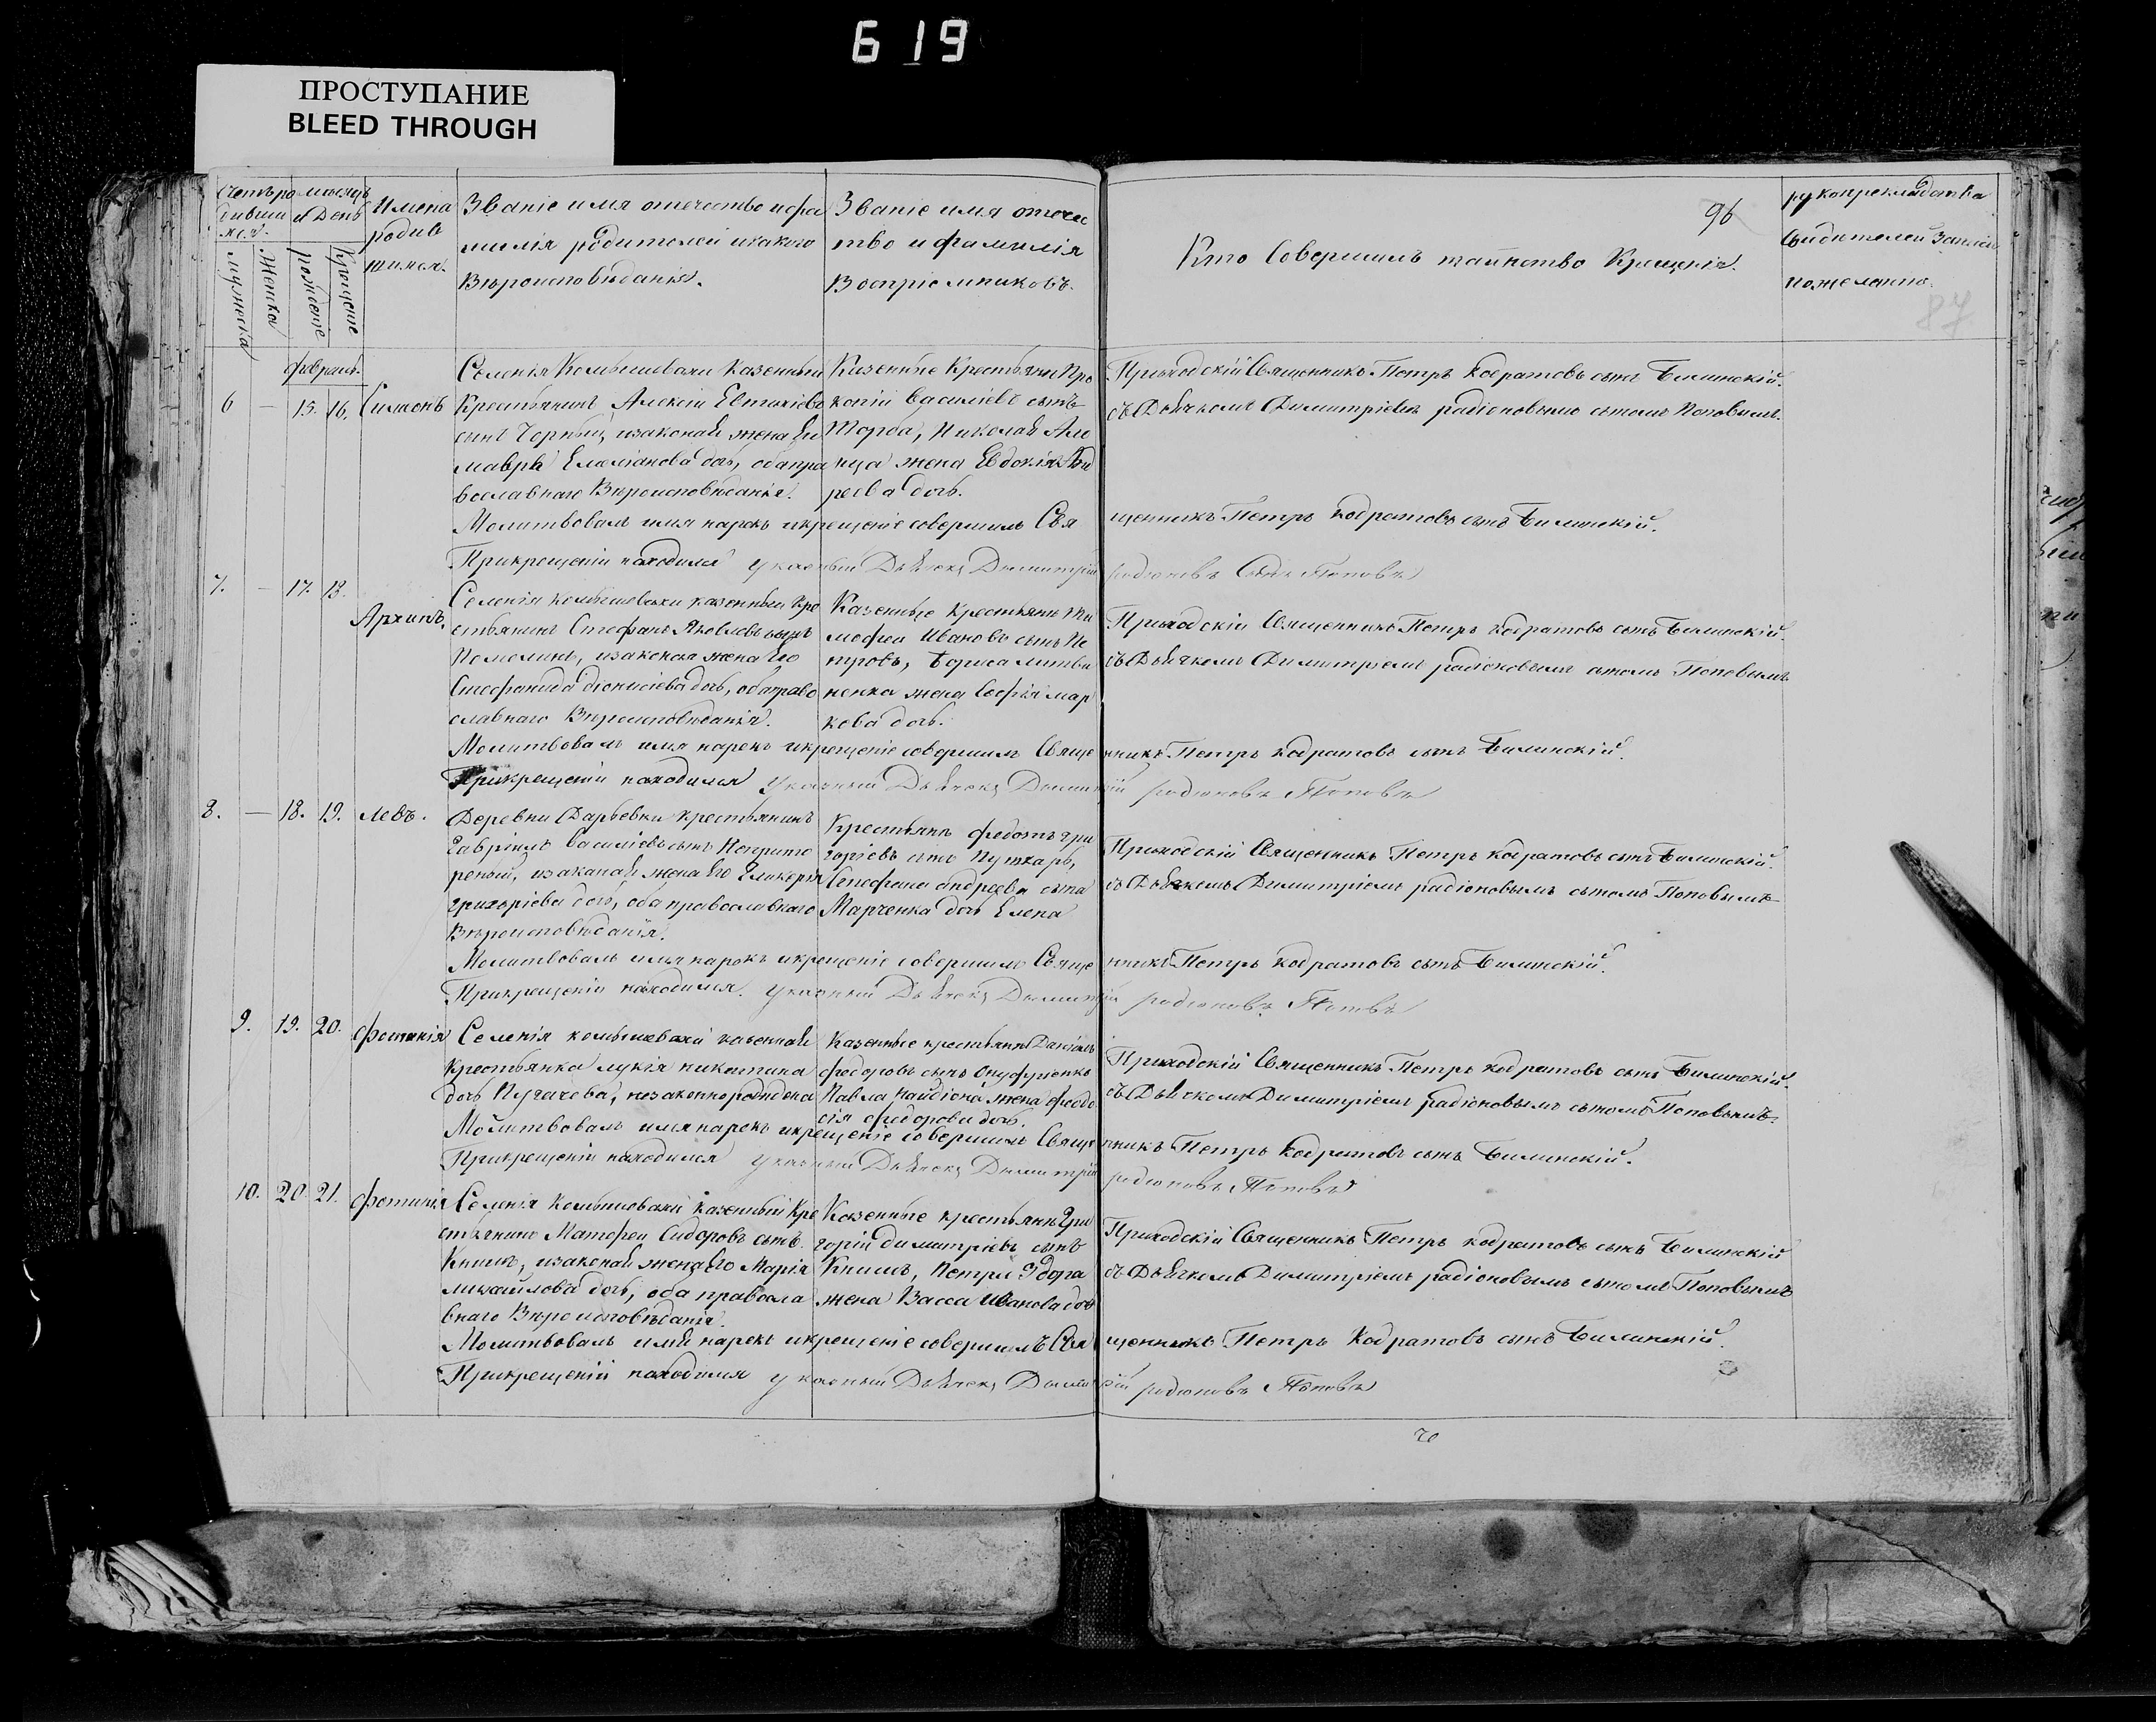 619
ПРОСТУПАНИЕ
BLEED THROUGH
96
87
Счетъ родившихся
мужеска
женска
месяцъ и День
рождение
Крещение
Имена
родив
шихся.
Званіе имя отечество и фа
милія родителей и какого
Вѣроисповѣданія.
Званіе имя отече
ство и фамилія
Воспріемниковъ.
Кто Совершилъ таинство Крещенія.
рукоприкладства
Свидетелей Записи
по желанію.
февраль.
6 — 15. 16. Симонъ
Селенія Комышевахи Казенный
Крестьянинъ Алексій Евтихіевъ
сынъ Чорный, и законая жена Его
Мавра Емеліанова дочь, оба пра
вославнаго Вѣроисповѣданія.
Казенные Крестьяне Про
копій Василіевъ сынъ
Торба, Николая
жена Евдокія Анд
реева дочь.
Приходскій Священникъ Петръ Кодратовъ сынъ Билинскій.
съ Дьячкомъ Димитріемъ радіоновымъ сыномъ Поповымъ.
Молитвовалъ имя нарекъ и крещеніе совершилъ Свя щенникъ Петръ Кодратовъ сынъ Билинскій.
При крещеніи находился указный Дьячекъ Димитрій родіоновъ Сынъ Поповъ
7. — 17. 18. Архипъ.
Селенія комышевахи казенный кре
стьянинъ Стефанъ Яковлевъ сынъ
и законая жена Его
Стефанида діонисіева дочь, оба право
славнаго Вѣроисповѣданія.
Казенные крестьяне Ти
мофей Ивановъ сынъ Пе
тровъ, Бориса литви
ненка жена Софія мар
кова дочь.
Приходскій Священникъ Петръ кодратовъ сынъ Билинскій.
съ Дьячкомъ Димитріемъ радіоновымъ сыномъ Поповымъ
Молитвовалъ имя нарекъ и крещеніе совершилъ Свяще нникъ Петръ кодратовъ сынъ Билинскій.
При крещеніи находился указный Дьячекъ Димитрій родіоновъ Поповъ
8. — 18. 19. Левъ.
Деревни Дарьевки крестьянинъ
Гавріилъ Василіевъ сынъ Неприте
реный, и законая жена Его Гликерія
григоріева дочь, оба православнаго
Вѣроисповѣданія.
Крестьяне федотъ гри
горіевъ сынъ Пушкарь,
Стефана андреева сына
Марченка дочь Елена
Приходскій Священникъ Петръ кодратовъ сынъ Билинскій.
съ Дьячкомъ Димитріемъ радіоновымъ сыномъ Поповымъ
Молитвовалъ имя нарекъ и крещеніе совершилъ Свяще нникъ Петръ кодратовъ сынъ Билинскій.
При крещеніи находился. указный Дьячекъ Димитрій родіоновъ Поповъ
9. 19. 20. фотинія
Селенія комышевахи казенная
Крестьянка лукія никитина
дочь Пугачова, незаконнорождена
Казенные крестьяне Даніилъ
федоровъ сынъ Онуфріенко
Павла Найдіона жена феодо
сія федорова дочь.
Приходскій Священникъ Петръ кодратовъ сынъ Билинскій.
съ Дьячкомъ Димитріемъ радіоновымъ сыномъ Поповымъ.
Молитвовалъ имя нарекъ и крещеніе совершилъ Свяще нникъ Петръ Кодратовъ сынъ Билинскій.
При крещеніи находился указный Дьячекъ Димитрій родіоновъ Поповъ
10. 20. 21. фотинія
Селенія Комышевахи Казенный Кре
стьянинъ Матфей Сидоровъ сынъ
Книшъ, и законая жена Его Марія
михайлова дочь, оба правосла
внаго Вѣроисповѣданія.
Казенные крестьяне Гри
горій димитріевъ сынъ
Книшъ, Петра Здора
жена Васса Иванова дочь
Приходскій Священникъ Петръ кодратовъ сынъ Билинскій
съ Дьячкомъ Димитріемъ радіоновымъ сыномъ Поповымъ
Молитвовалъ имя нарекъ и крещеніе совершилъ Свя щенникъ Петръ Кодратовъ сынъ Билинскій.
При крещеніи находился указный Дьячекъ Димитрій родіоновъ Поповъ